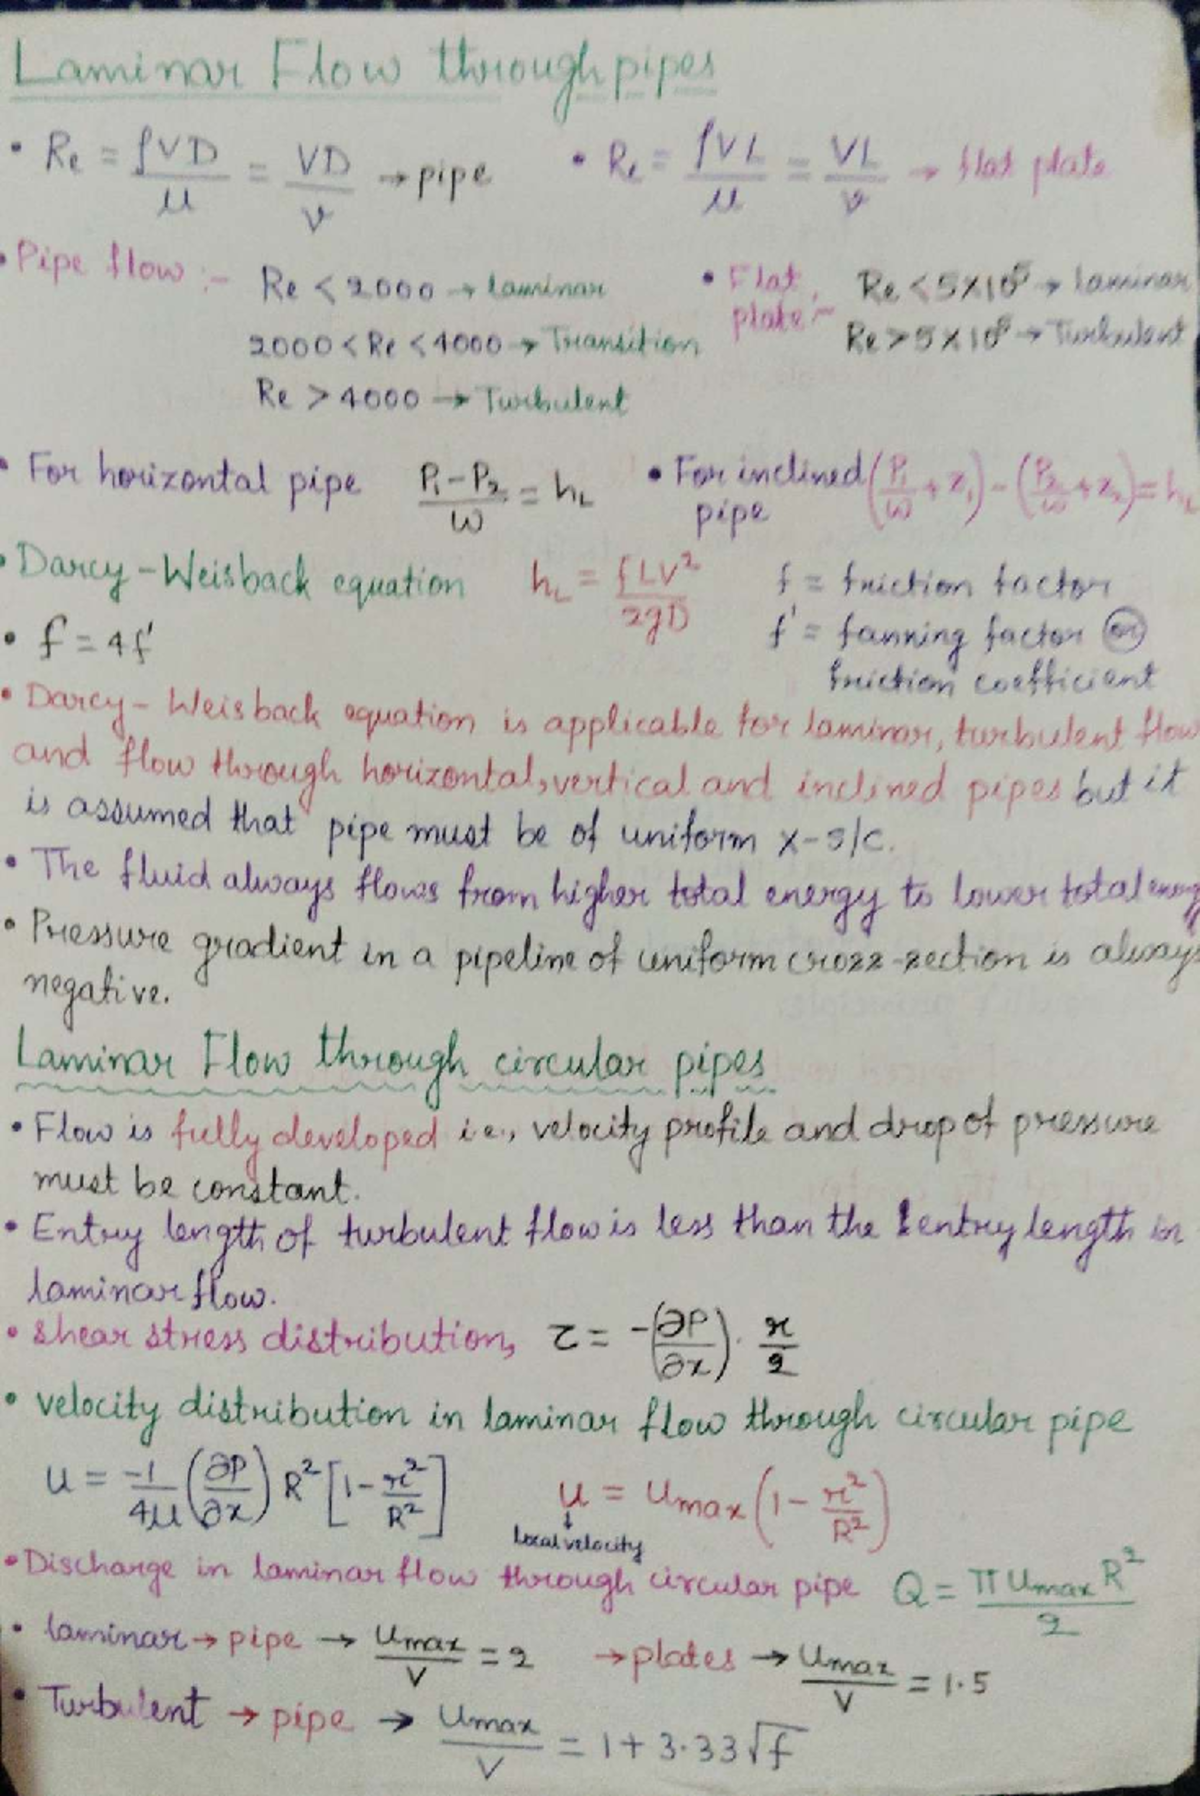 Laminar Flow through pipes
• Re = ρVD/μ = VD/ν → pipe • Re = ρVL/μ = VL/ν → flat plate
• Pipe flow :- Re < 2000 → laminar • Flat plate :- Re < 5×10⁵ → laminar
2000 < Re < 4000 → Transition Re > 5×10⁵ → Turbulent
Re > 4000 → Turbulent
• For horizontal pipe (P₁-P₂)/w = hL • For inclined pipe (P₁/w + z₁) - (P₂/w + z₂) = hL
• Darcy-Weisback equation hL = fLV²/2gD f = friction factor
• f = 4f' f' = fanning factor or
friction coefficient
• Darcy-Weisback equation is applicable for laminar, turbulent flow
and flow through horizontal, vertical and inclined pipes but it
is assumed that pipe must be of uniform x-s/c.
• The fluid always flows from higher total energy to lower total energy
• Pressure gradient in a pipeline of uniform cross-section is always
negative.
Laminar Flow through circular pipes
• Flow is fully developed i.e., velocity profile and drop of pressure
must be constant.
• Entry length of turbulent flow is less than the entry length in
laminar flow.
• Shear stress distribution, τ = -(∂P/∂x) · r/2
• velocity distribution in laminar flow through circular pipe
u = -1/4μ (∂P/∂x) R² [1 - r²/R²] u = Umax (1 - r²/R²)
local velocity
• Discharge in laminar flow through circular pipe Q = πUmaxR²/2
• laminar → pipe → Umax/V = 2 → plates → Umax/V = 1.5
• Turbulent → pipe → Umax/V = 1 + 3.33√f